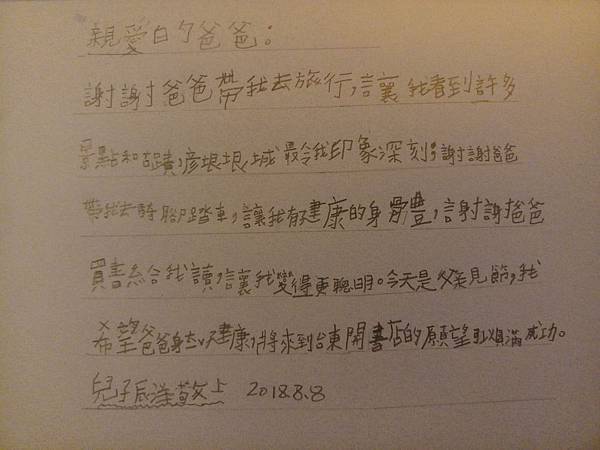 親愛的爸爸:
謝謝爸爸帶我去旅行,讓我看到許多
景點和古蹟,彥垠垠城最令我印象深刻;謝謝爸爸
帶我去騎腳踏車,讓我有健康的身體,謝謝爸爸
買書給我讀,讓我變得更聰明。今天是父親節,我
希望爸爸身體健康,將來到台東開書店的願望圓滿成功。
兒子辰洋敬上 2018.8.8